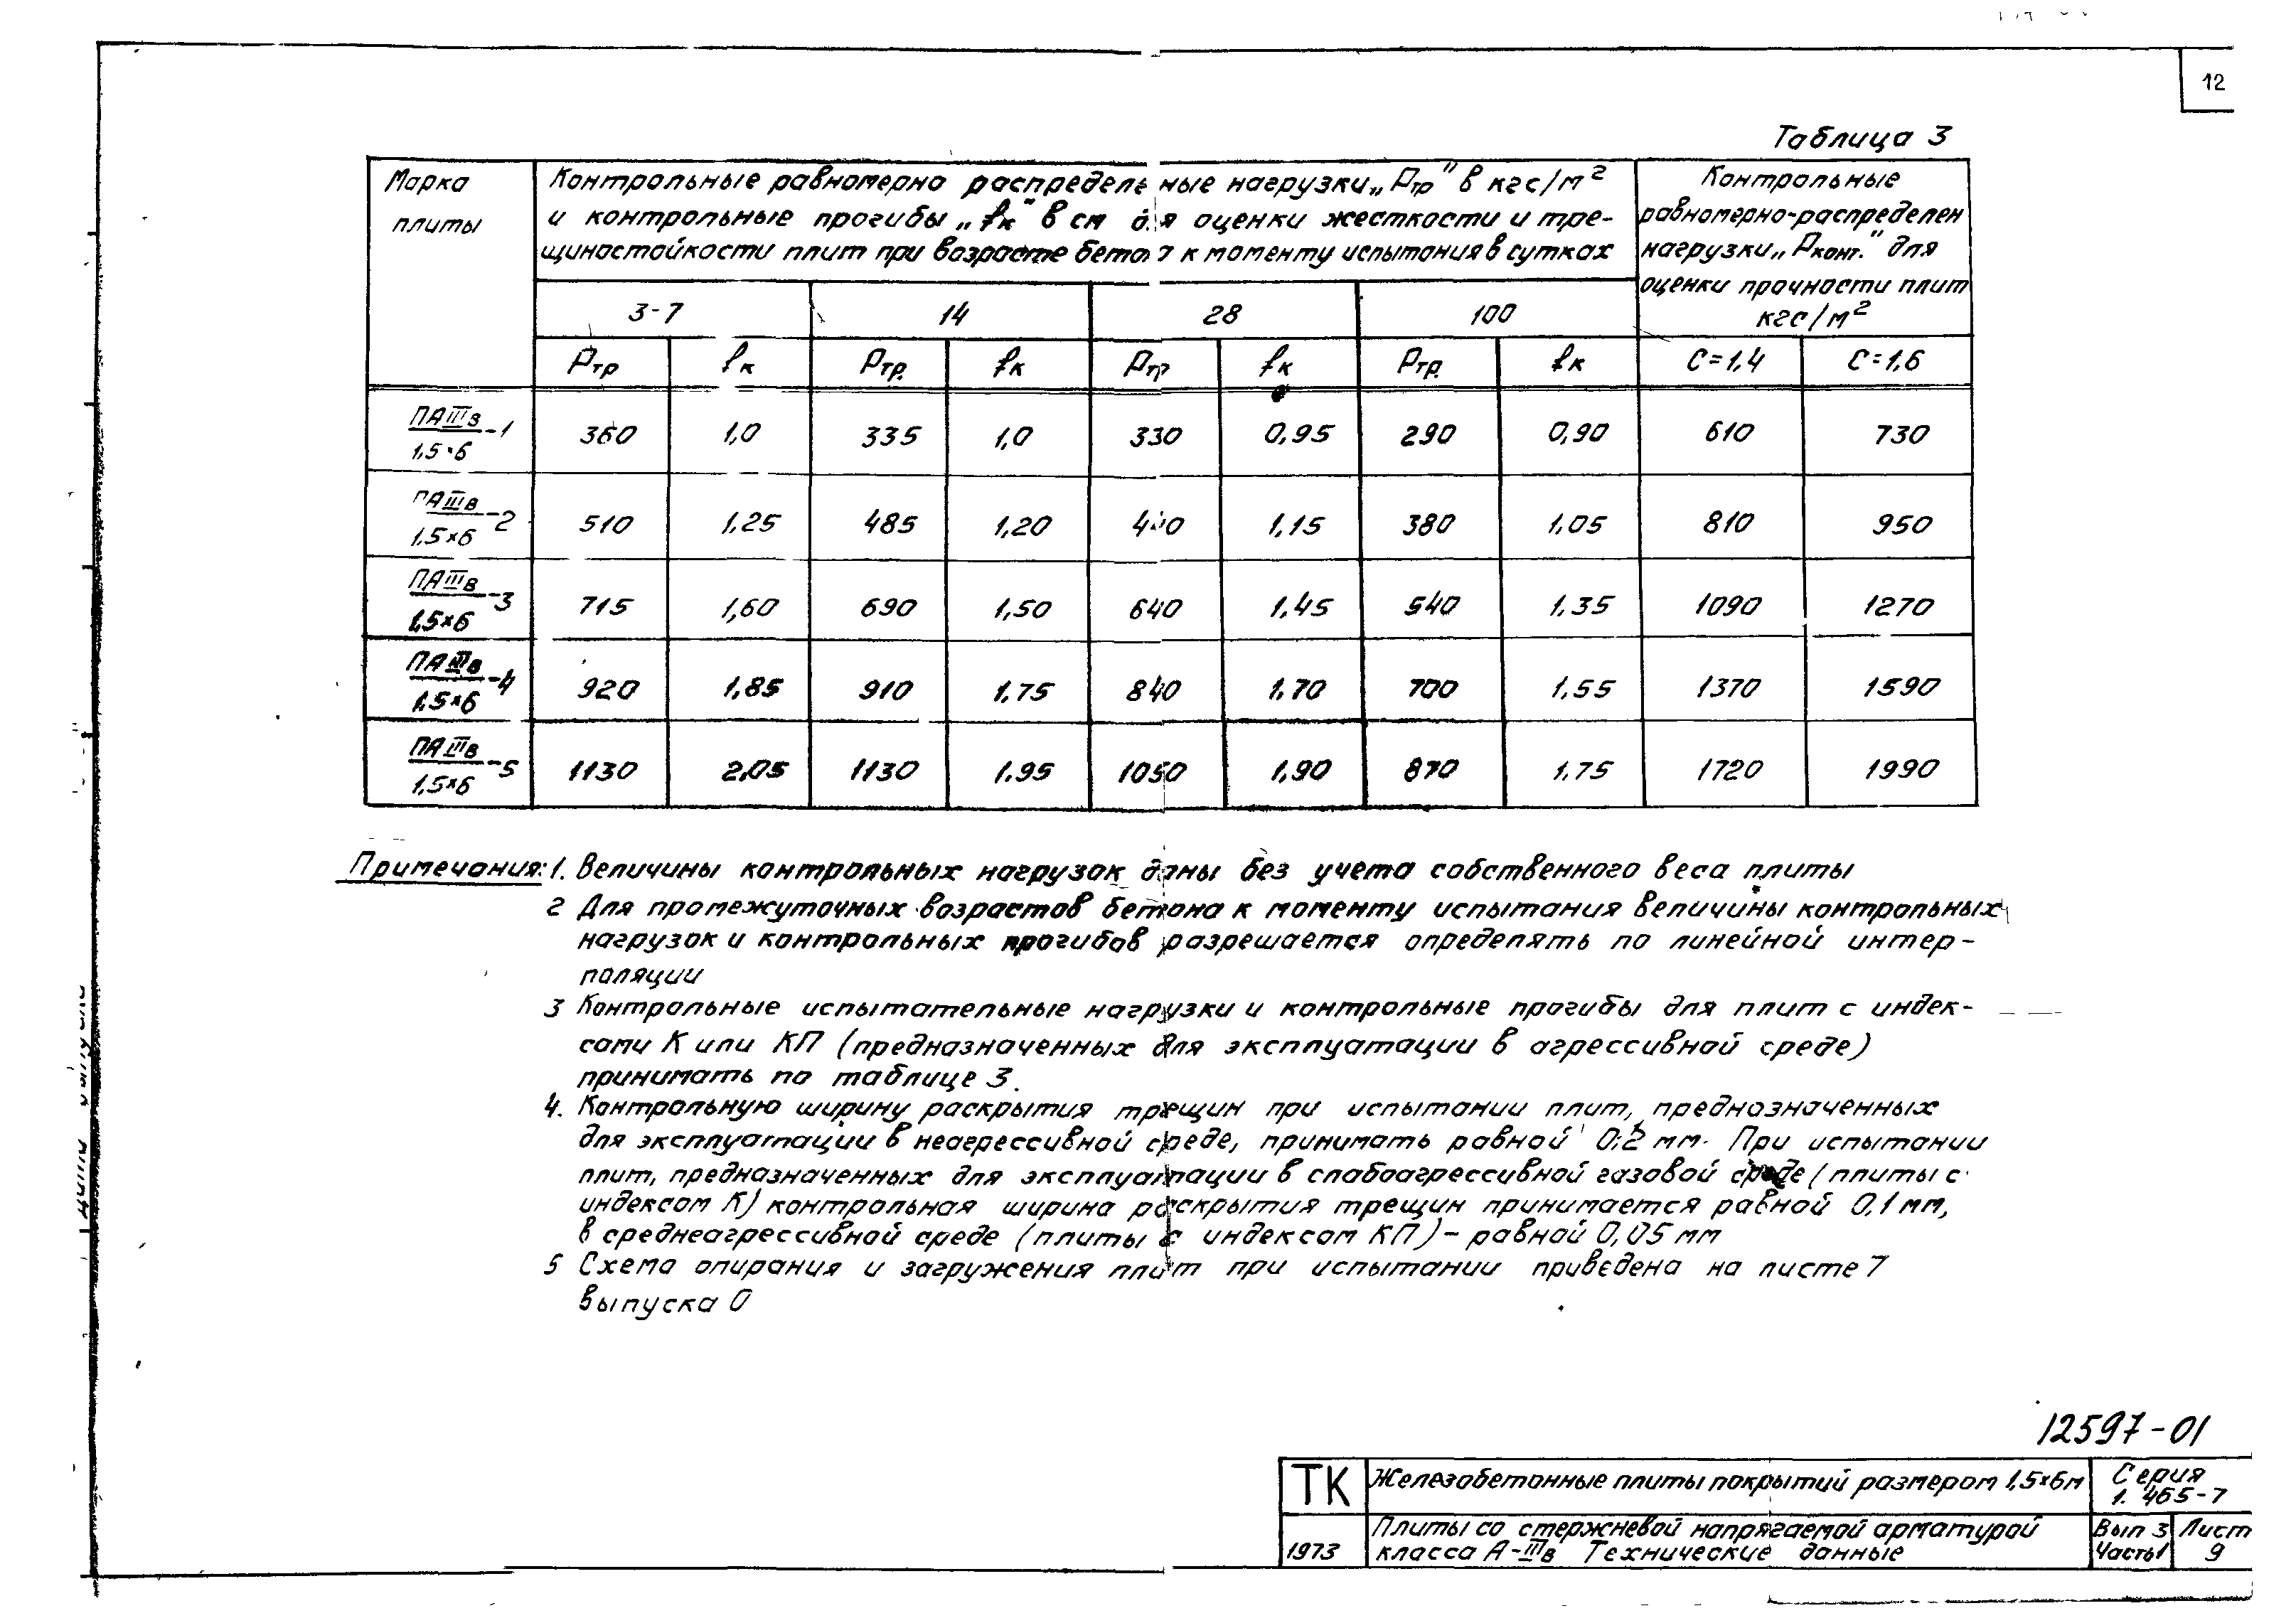 12
Таблица 3
Марка плиты
Контрольные равномерно распределенные нагрузки „Ртр" в кгс/м²
и контрольные прогибы „fк" в см для оценки жесткости и тре-
щиностойкости плит при возрасте бетона к моменту испытания в сутках
Контрольные
равномерно-распределен
нагрузки „Рконт." для
оценки прочности плит
кгс/м²
3-7 14 28 100
Ртр fк Ртр. fк Ртр fк Ртр. fк С=1,4 С=1,6
ПАIIIв/1,5×6-1 360 1,0 335 1,0 330 0,95 290 0,90 610 730
ПАIIIв/1,5×6-2 510 1,25 485 1,20 1,15 380 1,05 810 950
ПАIIIв/1,5×6-3 715 1,60 690 1,50 640 1,45 540 1,35 1090 1270
ПАIIIв/1,5×6-4 920 1,85 910 1,75 840 1,70 700 1,55 1370 1590
ПАIIIв/1,5×6-5 1130 2,05 1130 1.95 1050 1,90 870 1,75 1720 1990
Примечания: 1. Величины контрольных нагрузок даны без учета собственного веса плиты
2 Для промежуточных возрастов бетона к моменту испытания величины контрольных
нагрузок и контрольных прогибов разрешается определять по линейной интер-
поляции
3 Контрольные испытательные нагрузки и контрольные прогибы для плит с индек-
сами К или КП (предназначенных для эксплуатации в агрессивной среде)
принимать по таблице 3.
4. Контрольную ширину раскрытия трещин при испытании плит, предназначенных
для эксплуатации в неагрессивной среде, принимать равной 0,2 мм. При испытании
плит, предназначенных для эксплуатации в слабоагрессивной газовой среде (плиты с
индексом К) контрольная ширина раскрытия трещин принимается равной 0,1 мм,
в среднеагрессивной среде (плиты с индексом КП) – равной 0,05 мм
5 Схема опирания и загружения плит при испытании приведена на листе 7
выпуска 0
12597-01
ТК Железобетонные плиты покрытий размером 1,5×6м Серия
1. 465-7
1973 Плиты со стержневой напрягаемой арматурой
класса А-IIIв Технические данные
Вып 3 Часть1
Лист 9